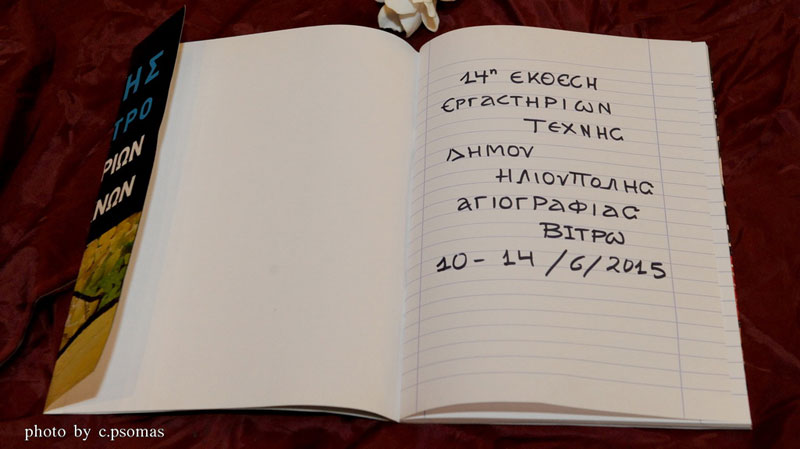 ΗΣ
ΤΡΟ
ΡΙΩΝ
ΝΩΝ
14η ΕΚΘΕΣΗ
ΕΡΓΑΣΤΗΡΙΩΝ
ΤΕΧΝΗΣ
ΔΗΜΟΥ
ΗΛΙΟΥΠΟΛΗΣ
ΑΓΙΟΓΡΑΦΙΑΣ
ΒΙΤΡΩ
10 - 14 /6/2015
photo by c.psomas